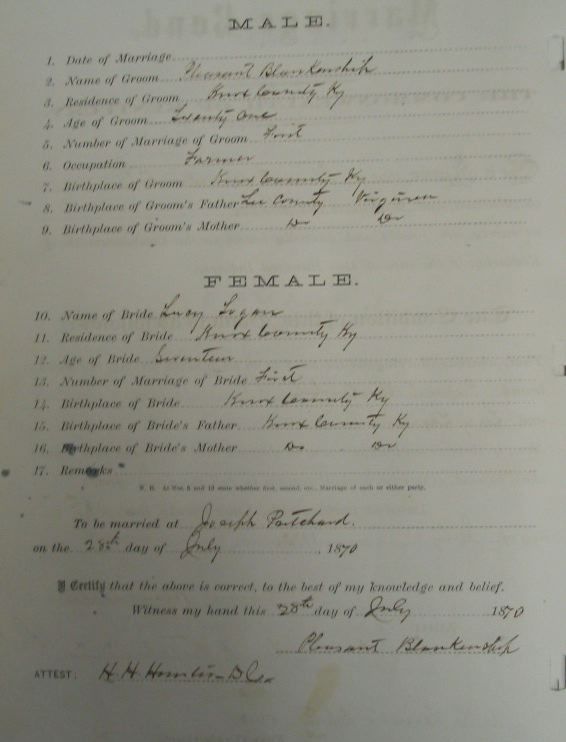 MALE.
1. Date of Marriage
2. Name of Groom Pleasant Blankenship
3. Residence of Groom Knox County Ky
4. Age of Groom Twenty One
5. Number of Marriage of Groom First
6. Occupation Farmer
7. Birthplace of Groom Knox County Ky
8. Birthplace of Groom's Father Lee County Virginia
9. Birthplace of Groom's Mother Do Do
FEMALE.
10. Name of Bride Lucy Logan
11. Residence of Bride Knox County Ky
12. Age of Bride Seventeen
13. Number of Marriage of Bride First
14. Birthplace of Bride Knox County Ky
15. Birthplace of Bride's Father Knox County Ky
16. Birthplace of Bride's Mother Do Do
17. Remarks
N. B. At Nos. 5 and 13 state whether first, second, etc., Marriage of each or either party.
To be married at Joseph Patchard.
on the 28th day of July, 1870
I Certify that the above is correct, to the best of my knowledge and belief.
Witness my hand this 28th day of July 1870
Pleasant Blankenship
ATTEST: H. H.